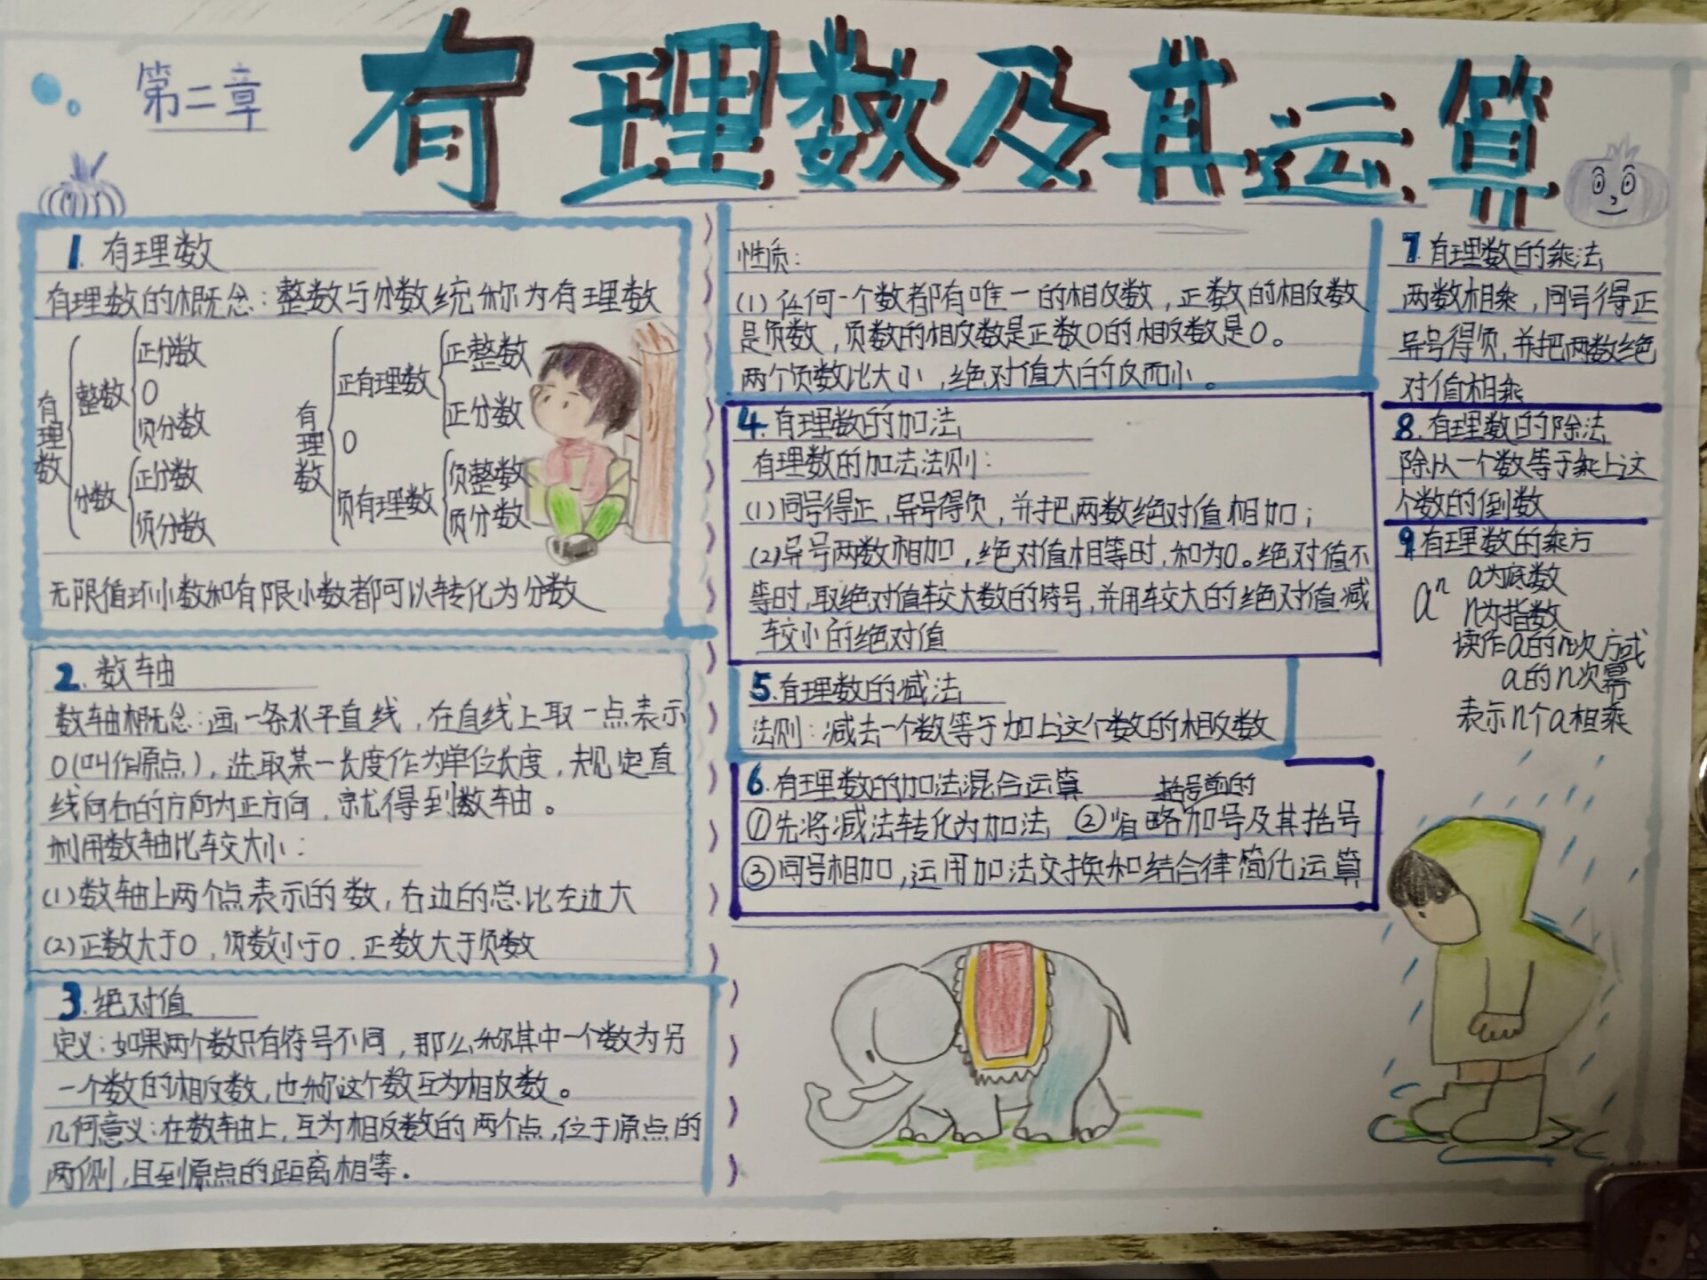 第二章
有理数及其运算
1. 有理数
有理数的概念：整数与分数统称为有理数
有理数
整数
正分数
0
负分数
分数
正分数
负分数
有理数
正有理数
正整数
正分数
0
负有理数
负整数
负分数
无限循环小数和有限小数都可以转化为分数
2. 数轴
数轴概念：画一条水平直线，在直线上取一点表示
0(叫作原点)，选取某一长度作为单位长度，规定直
线向右的方向为正方向，就得到数轴。
利用数轴比较大小：
(1)数轴上两个点表示的数，右边的总比左边大
(2)正数大于0，负数小于0.正数大于负数
3. 绝对值
定义：如果两个数只有符号不同，那么称其中一个数为另
一个数的相反数，也称这个数互为相反数。
几何意义：在数轴上，互为相反数的两个点，位于原点的
两侧，且到原点的距离相等.
性质：
(1)任何一个数都有唯一的相反数，正数的相反数
是负数，负数的相反数是正数0的相反数是0。
两个负数比大小，绝对值大的反而小。
4. 有理数的加法
有理数的加法法则：
(1)同号得正，异号得负，并把两数绝对值相加；
(2)异号两数相加，绝对值相等时，和为0。绝对值不
等时，取绝对值较大数的符号，并用较大的绝对值减
较小的绝对值
5.有理数的减法
法则：减去一个数等于加上这个数的相反数
6.有理数的加法混合运算
括号前的
①先将减法转化为加法 ②省略加号及其括号
③同号相加，运用加法交换和结合律简化运算
7.有理数的乘法
两数相乘，同号得正
异号得负，并把两数绝
对值相乘
8.有理数的除法
除以一个数等于乘上这
个数的倒数
9.有理数的乘方
aⁿ a为底数
n为指数
读作a的n次方或
a的n次幂
表示n个a相乘